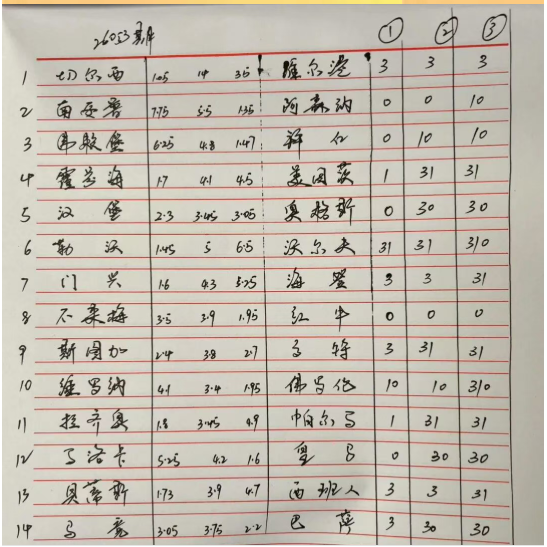 26053期
① ② ③
1 切尔西 1.05 14 35 维尔港 3 3 3
2 南安普 7.75 5.5 1.35 阿森纳 0 0 10
3 弗赖堡 6.25 4.8 1.47 拜仁 0 10 10
4 霍芬海 1.7 4.1 4.5 美因茨 1 31 31
5 汉堡 2.3 3.45 3.05 奥格斯 0 30 30
6 勒沃 1.45 5 6.5 沃尔夫 31 31 310
7 门兴 1.6 4.3 5.25 海登 3 3 31
8 不柔梅 3.5 3.9 1.95 红牛 0 0 0
9 斯图加 2.4 3.8 2.7 多特 3 31 31
10 维罗纳 4.1 3.4 1.95 佛罗伦 10 10 310
11 拉齐奥 1.8 3.45 4.9 帕尔马 1 31 31
12 马洛卡 5.25 4.2 1.6 皇马 0 30 30
13 贝蒂斯 1.73 3.9 4.7 西班人 3 3 31
14 马竞 3.05 3.75 2.2 巴萨 3 30 30